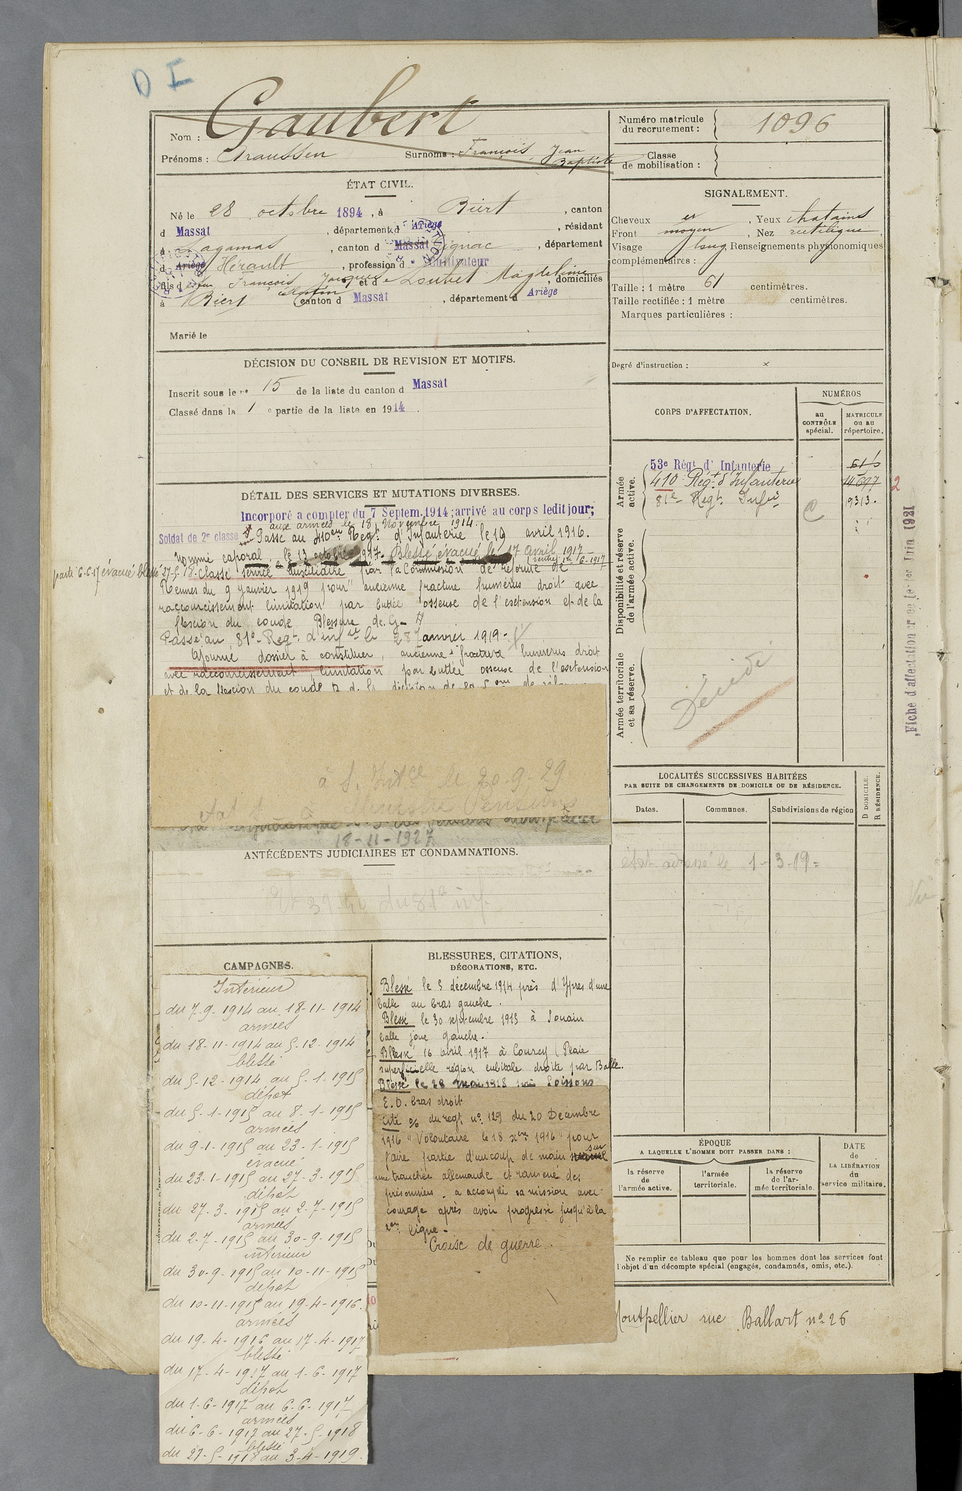 D I
Nom : Gaubert
Prénoms : Surnoms : François Jean Baptiste
Numéro matricule du recrutement : 1096
Classe de mobilisation :
ÉTAT CIVIL.
Né le 28 octobre 1894, à Biert, canton
d Massat, département d Ariège, résidant
à canton d Massat, département
d Ariège Hérault, profession d Cultivateur
fils d François et d Loubet Magdeleine, domiciliés
à Biert canton d Massat, département d Ariège
Marié le
SIGNALEMENT.
Cheveux Yeux chatains
Front moyen, Nez rectiligne
Visage long Renseignements physionomiques
complémentaires :
Taille : 1 mètre 61 centimètres.
Taille rectifiée : 1 mètre centimètres.
Marques particulières :
Degré d'instruction : x
DÉCISION DU CONSEIL DE REVISION ET MOTIFS.
Inscrit sous le n° 15 de la liste du canton d Massat
Classé dans la 1e partie de la liste en 1914.
CORPS D'AFFECTATION.
NUMÉROS
au CONTRÔLE spécial.
MATRICULE ou au répertoire.
Armée active.
53e Régt d'Infanterie
410 Régt d'Infanterie
81e Regt Infie 9313
Disponibilité et réserve de l'armée active.
Armée territoriale et sa réserve.
DÉTAIL DES SERVICES ET MUTATIONS DIVERSES.
Incorporé a compter du 7 Septem. 1914; arrivé au corps ledit jour;
Soldat de 2e classe
aux armées le 18 Novembre 1914.
Passé au 410e Regt d'Infanterie le 19 avril 1916.
Nommé caporal le 13 octobre 1917. Blessé évacué le 17 avril 1917
parti 6-6-17 évacué blessé 27-5-18. classé service auxiliaire par la Commission de réforme de
Rennes du 9 janvier 1919 pour ancienne fracture humérus droit avec
raccourcissement limitation par butée osseuse de l'extension et de la
flexion du coude Blessure de G-
Passé au 81e Regt d'infie le 28 janvier 1919-
Ajourné dossier à constituer, ancienne fracture humérus droit
avec raccourcissement limitation par butée osseuse de l'extension
et de la flexion du coude
à S. Intce le 20-9-29
18-11-1927
LOCALITÉS SUCCESSIVES HABITÉES
PAR SUITE DE CHANGEMENTS DE DOMICILE OU DE RÉSIDENCE.
Dates.
Communes.
Subdivisions de région
D DOMICILE.
R RÉSIDENCE.
1-3-19=
ANTÉCÉDENTS JUDICIAIRES ET CONDAMNATIONS.
CAMPAGNES.
Intérieur
du 7-9-1914 au 18-11-1914
armées
du 18-11-1914 au 5-12-1914
blessé
du 5-12-1914 au 5-1-1915
dépot
du 5-1-1915 au 8-1-1915
armées
du 9-1-1915 au 23-1-1915
évacué
du 23-1-1915 au 27-3-1915
dépot
du 27-3-1915 au 2-7-1915
armées
du 2-7-1915 au 30-9-1915
intérieur
du 30-9-1915 au 10-11-1915
dépot
du 10-11-1915 au 19-4-1916.
armées
du 19-4-1916 au 17-4-1917
blessé
du 17-4-1917 au 1-6-1917
dépot
du 1-6-1917 au 6-6-1917
armées
du 6-6-1917 au 27-5-1918
blessé
du 27-5-1918 au 3-4-1919.
BLESSURES, CITATIONS,
DÉCORATIONS, ETC.
Blessé le 5 décembre 1914 près d'Ypres d'une
balle au bras gauche.
Blessé le 30 septembre 1915 à Souain
balle joue gauche.
Blessé 16 avril 1917 à Courcy (Plaie
superficielle région cubitale droite par Balle.
Blessé le 28 mai 1918 près Soissons
E.O. bras droit
Cité du regt n° 129 du 20 Décembre
1916 "Volontaire le 18 Xbre 1916 pour
faire partie d'un coup de main sur
une tranchée allemande et ramené des
prisonniers. a accompli sa mission avec
courage après avoir progressé jusqu'à la
ligne-
Croix de guerre.
ÉPOQUE
A LAQUELLE L'HOMME DOIT PASSER DANS :
la réserve de l'armée active.
l'armée territoriale.
la réserve de l'armée territoriale.
DATE DE LA LIBÉRATION du service militaire.
Ne remplir ce tableau que pour les hommes dont les services font
l'objet d'un décompte spécial (engagés, condamnés, omis, etc.).
Montpellier rue Ballart n° 26